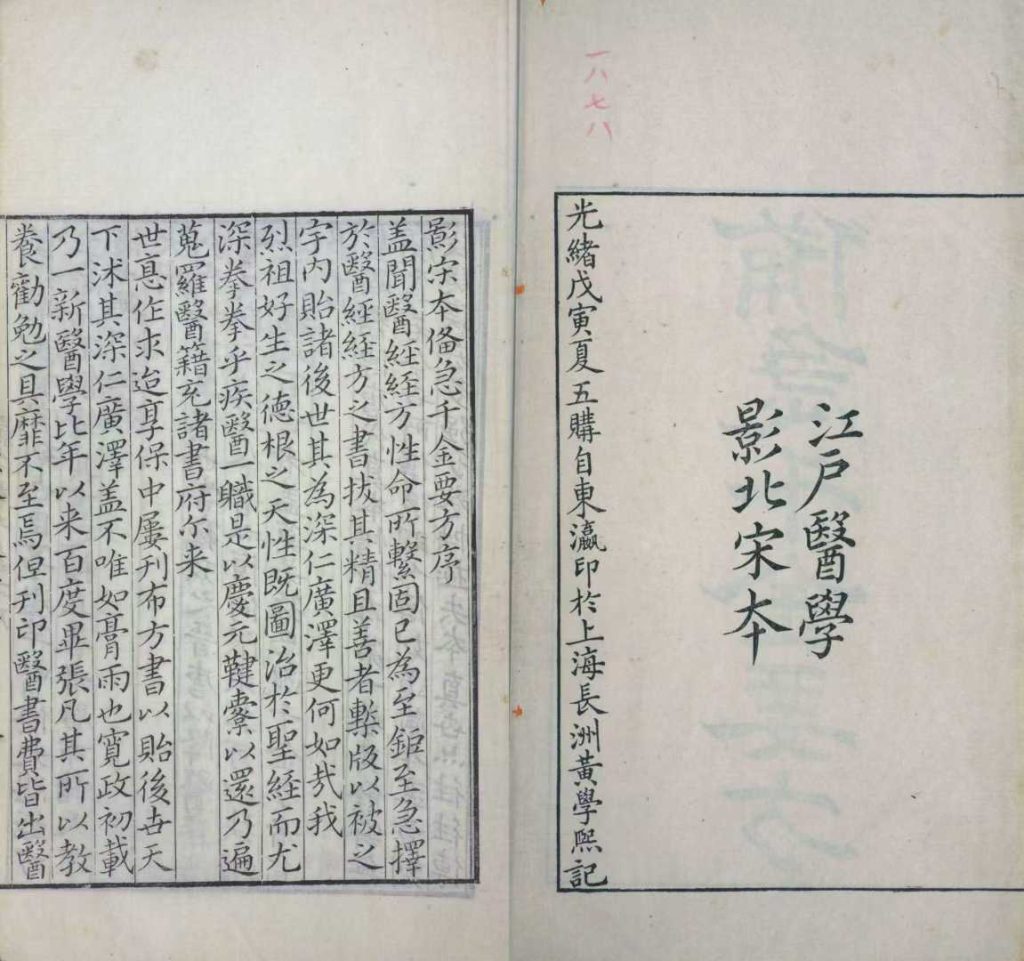 一八七八
江戶醫學
影北宋本
光緒戊寅夏五購自東瀛印於上海長洲黃學熙記
影宋本備急千金要方序
蓋聞醫經經方性命所繫固已為至鉅至急擇
於醫經經方之書拔其精且善者槧版以被之
宇内貽諸後世其為深仁廣澤更何如哉我
烈祖好生之德根之天性既圖治於聖經而尤
深拳拳乎疾醫一職是以慶元鞬櫜以還乃遍
蒐羅醫籍充諸書府尔来
世憙作求迨享保中屢刊布方書以貽後世天
下沭其深仁廣澤蓋不唯如膏雨也寬政初載
乃一新醫學比年以来百度畢張凡其所以教
養勸勉之具靡不至焉但刊印醫書費皆出醫